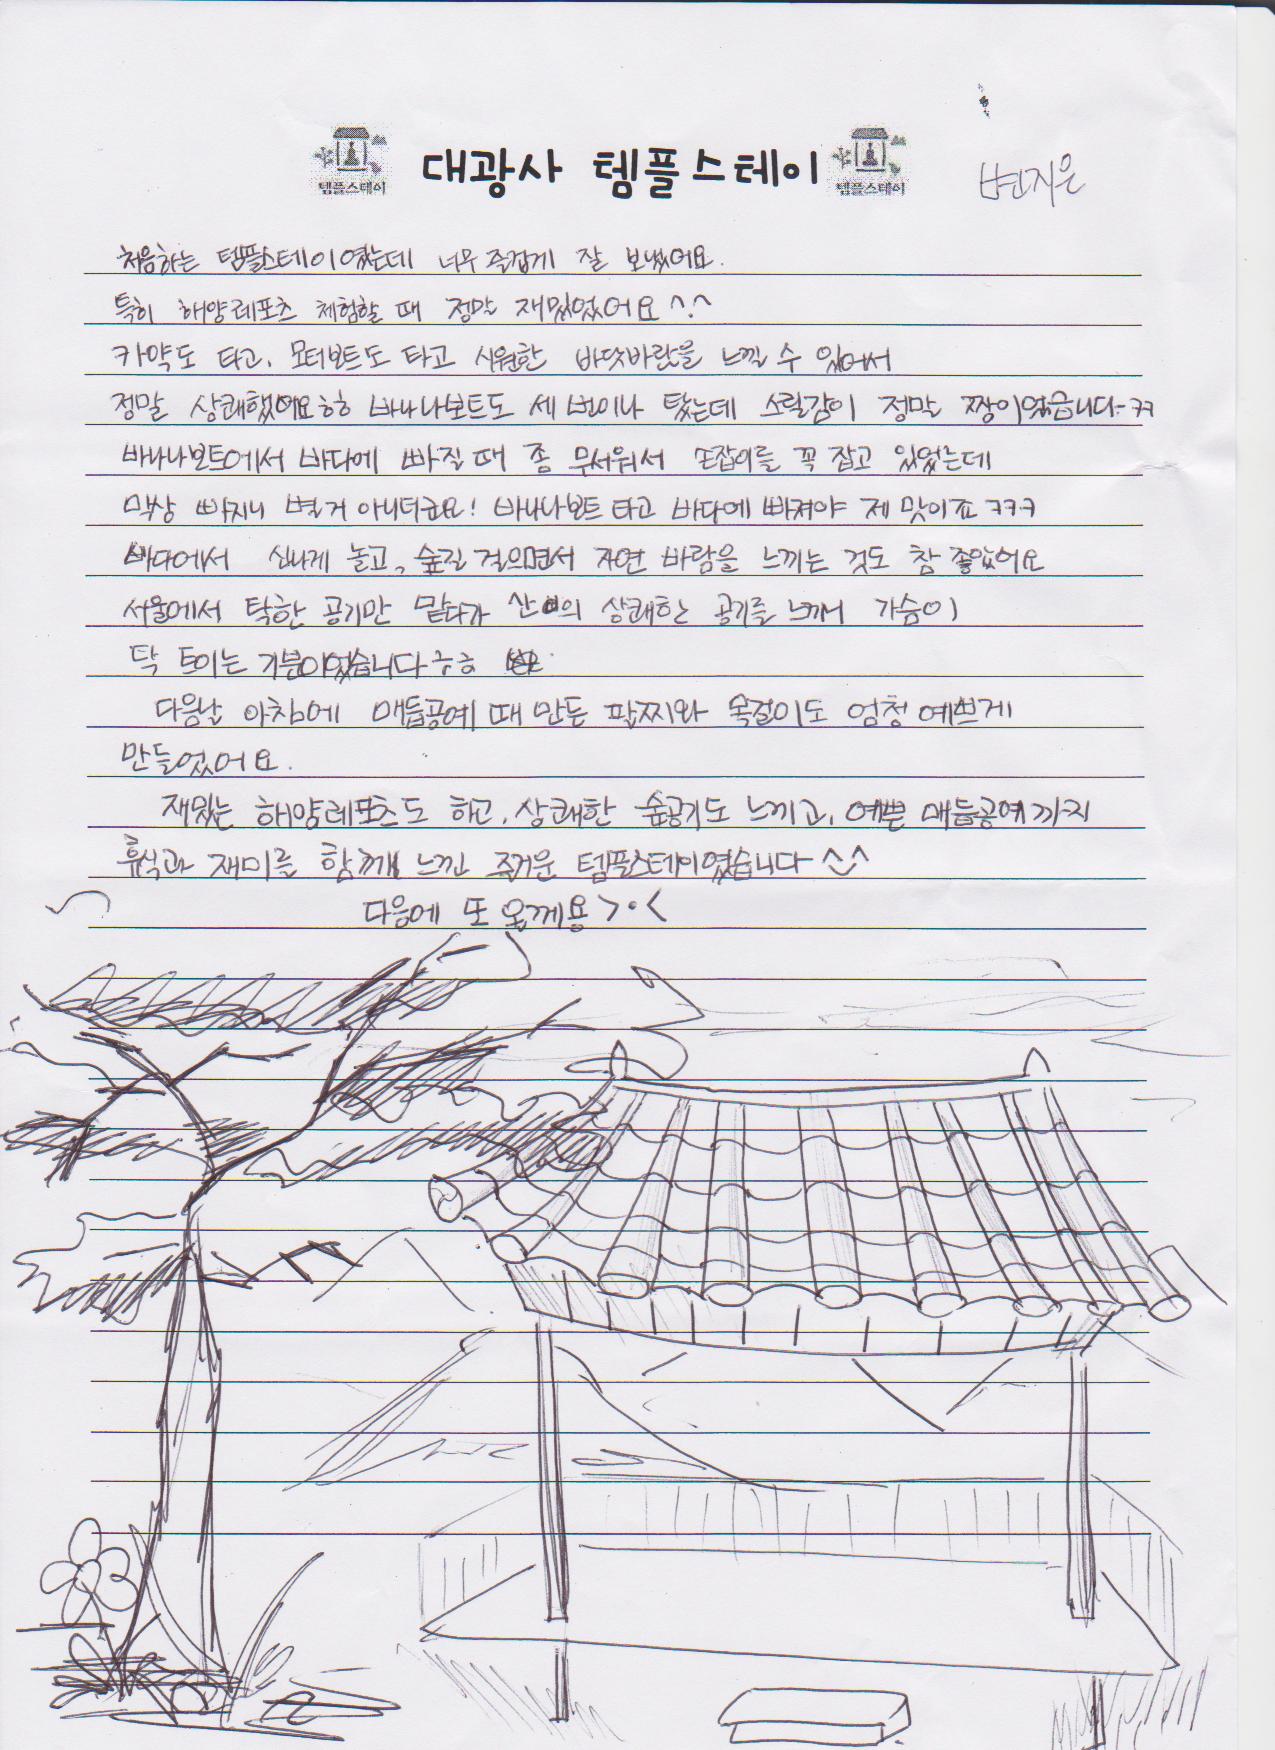 대광사 템플스테이
템플스테이
템플스테이
변지은
처음하는 템플스테이였는데 너무 즐겁게 잘 보냈어요.
특히 해양레포츠 체험할 때 정말 재밌었어요 ^.^
카약도 타고, 모터보트도 타고 시원한 바닷바람을 느낄 수 있어서
정말 상쾌했어요ㅎㅎ 바나나보트도 세 번이나 탔는데 스릴감이 정말 짱이었습니다~ㅋㅋ
바나나보트에서 바다에 빠질 때 좀 무서워서 손잡이를 꼭 잡고 있었는데
막상 빠지니 별거 아니더군요! 바나나보트 타고 바다에 빠져야 제 맛이죠 ㅋㅋㅋ
바다에서 신나게 놀고, 숲길 걸으면서 자연 바람을 느끼는 것도 참 좋았어요
서울에서 탁한 공기만 맡다가 산의 상쾌한 공기를 느끼니 가슴이
탁 트이는 기분이었습니다ㅎㅎ
다음날 아침에 매듭공예 때 만든 팔찌와 목걸이도 엄청 예쁘게
만들었어요.
재밌는 해양레포츠도 하고, 상쾌한 숲공기도 느끼고, 예쁜 매듭공예까지
휴식과 재미를 함께 느낀 즐거운 템플스테이였습니다 ^^
다음에 또 올께용 >.<